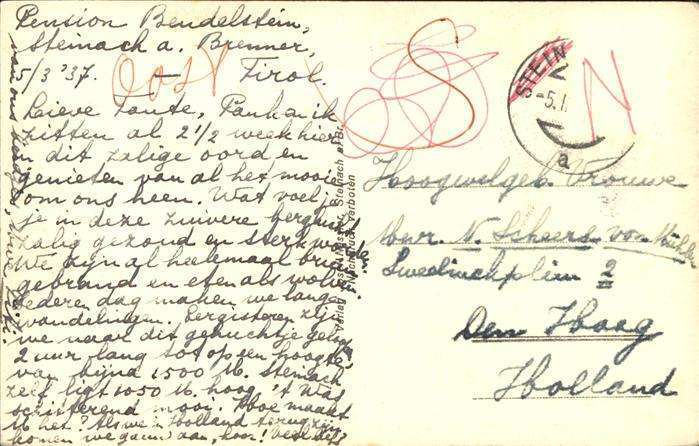 Pension Bendelstein,
Steinach a. Brenner,
5/3 '37. — Tirol.
Lieve Tante, Pankarik
zitten al 2 1/2 week hier
in dit zalige oord en
genieten van al het mooie
om ons heen. Wat voel je
je in deze zuivere berglucht
zalig gezond en sterk
We zijn al heelemaal bruin
gebrand en eten als wolven.
Iedere dag maken we lange
wandelingen. Eergisteren zijn
we naar dit gehuchtje gelopen,
2 uur lang tot op een hoogte
van bijna 1500 M. Steinach
zelf ligt 1050 M. hoog. 't Was
schitterend mooi. Hoe maakt
U het? Als we in Holland terug zijn
komen we gauw aan, hoor!
van ons
Oost
S
N
STEIN
-5.I
a
Verlag Steinach a. Br.
Nachdruck verboten
Hoogwelgeb. Vrouwe
Mevr. N. Scheers von
Sweelinckplein 2
Den Haag
Holland